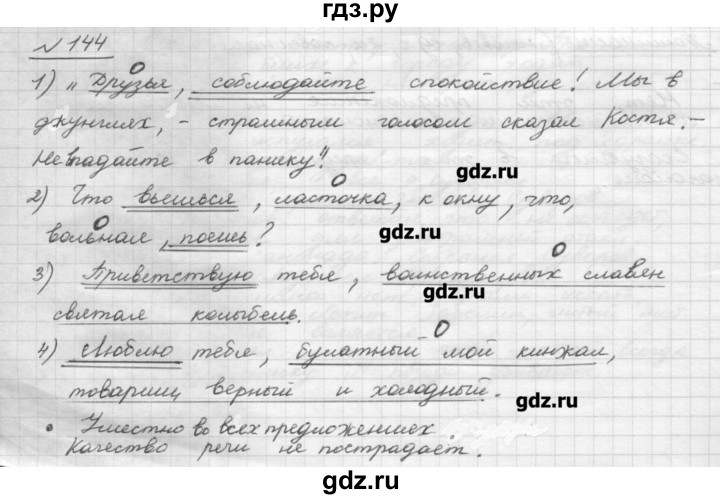 гдз.ру
№ 144
1) „Друзья, соблюдайте спокойствие! Мы в
джунглях, – страшным голосом сказал Костя. –
Не впадайте в панику!"
gdz.ru
2) Что вьешься, ласточка, к окну, что,
вольная, поешь?
gdz.ru
3) Приветствую тебя, воинственных славян
gdz.ru
святая колыбель.
4) Люблю тебя, булатный мой кинжал,
товарищ верный и холодный.
gdz.ru
• Уместно во всех предложениях.
Качество речи не пострадает.
gdz.ru